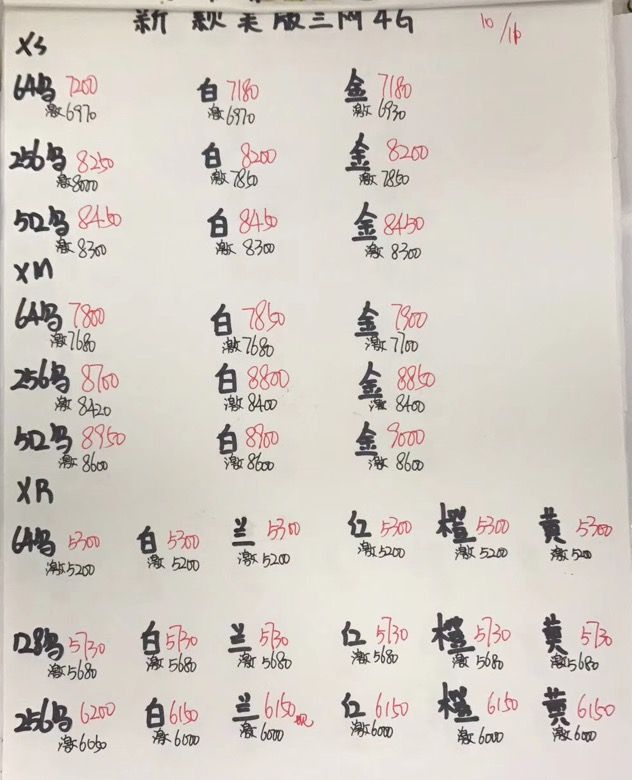 新款美版三网4G 10/16
XS
64乌 7200 白 7180 金 7180
激6970 激6970 激6930
256乌 8250 白 8200 金 8200
激8000 激7850 激7850
512乌 8450 白 8450 金 8450
激8300 激8300 激8300
XM
64乌 7800 白 7850 金 7900
激7680 激7680 激7700
256乌 8700 白 8800 金 8850
激8420 激8400 激8400
512乌 8950 白 8900 金 9000
激8600 激8600 激8600
XR
64乌 5300 白 5300 兰 5300 红 5300 橙 5300 黄 5300
激5200 激5200 激5200 激5200 激5200 激5200
128乌 5730 白 5730 兰 5730 红 5730 橙 5730 黄 5730
激5680 激5680 激5680 激5680 激5680 激5680
256乌 6200 白 6150 兰 6150现 红 6150 橙 6150 黄 6150
激6050 激6000 激6000 激6000 激6000 激6000